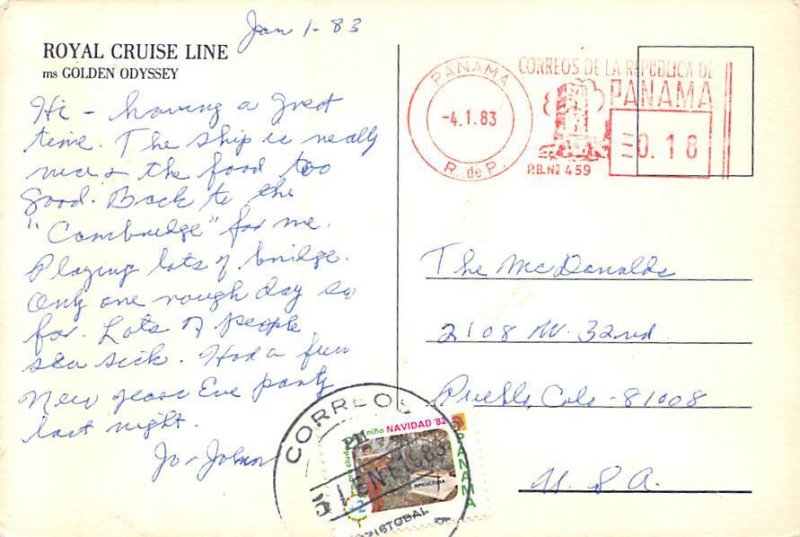 Jan 1-83
ROYAL CRUISE LINE
ms GOLDEN ODYSSEY
Hi - having a great
time. The ship is really
nice & the food too
good. Back to the
"Cambridge" for me.
Playing lots of bridge.
Only one rough day so
far. Lots of people
sea sick. Had a fun
New years Eve party
last night.
Jo & John
PANAMA
-4.1.83
R. de P.
CORREOS DE LA REPUBLICA DE
PANAMA
0.18
P.B. Nº 459
The McDonalds
2108 W. 32nd
Pueblo, Colo - 81008
U.S.A.
CORREOS
niño NAVIDAD '82
PANAMA
APICULTURA
CRISTOBAL